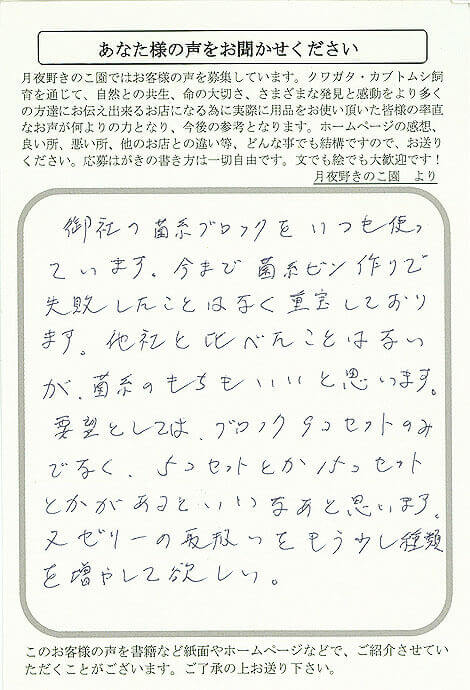 あなた様の声をお聞かせください
月夜野きのこ園ではお客様の声を募集しています。クワガタ・カブトムシ飼
育を通じて、自然との共生、命の大切さ、さまざまな発見と感動をより多く
の方達にお伝え出来るお店になる為に実際に用品をお使い頂いた皆様の率直
なお声が何よりの力となり、今後の参考となります。ホームページの感想、
良い所、悪い所、他のお店との違い等、どんな事でも結構ですので、お送り
ください。応募はがきの書き方は一切自由です。文でも絵でも大歓迎です！
月夜野きのこ園　より
御社の菌糸ブロックをいつも使っ
ています。今まで菌糸ビン作りで
失敗したことはなく重宝しており
ます。他社と比べたことはない
が、菌糸のもちもいいと思います。
要望としては、ブロック9コセットのみ
でなく、5コセットとか15コセット
とかがあるといいなあと思います。
又ゼリーの取扱いをもう少し種類
を増やして欲しい。
このお客様の声を書籍など紙面やホームページなどで、ご紹介させてい
ただくことがございます。ご了承の上お送り下さい。